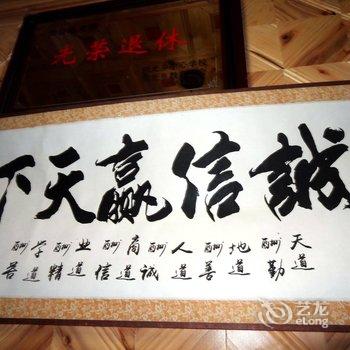 光荣退休
中心学校
誠信赢天下
天道酬勤 地道酬善 人道酬诚 商道酬信 业道酬精 学道酬苦
艺龙
eLong